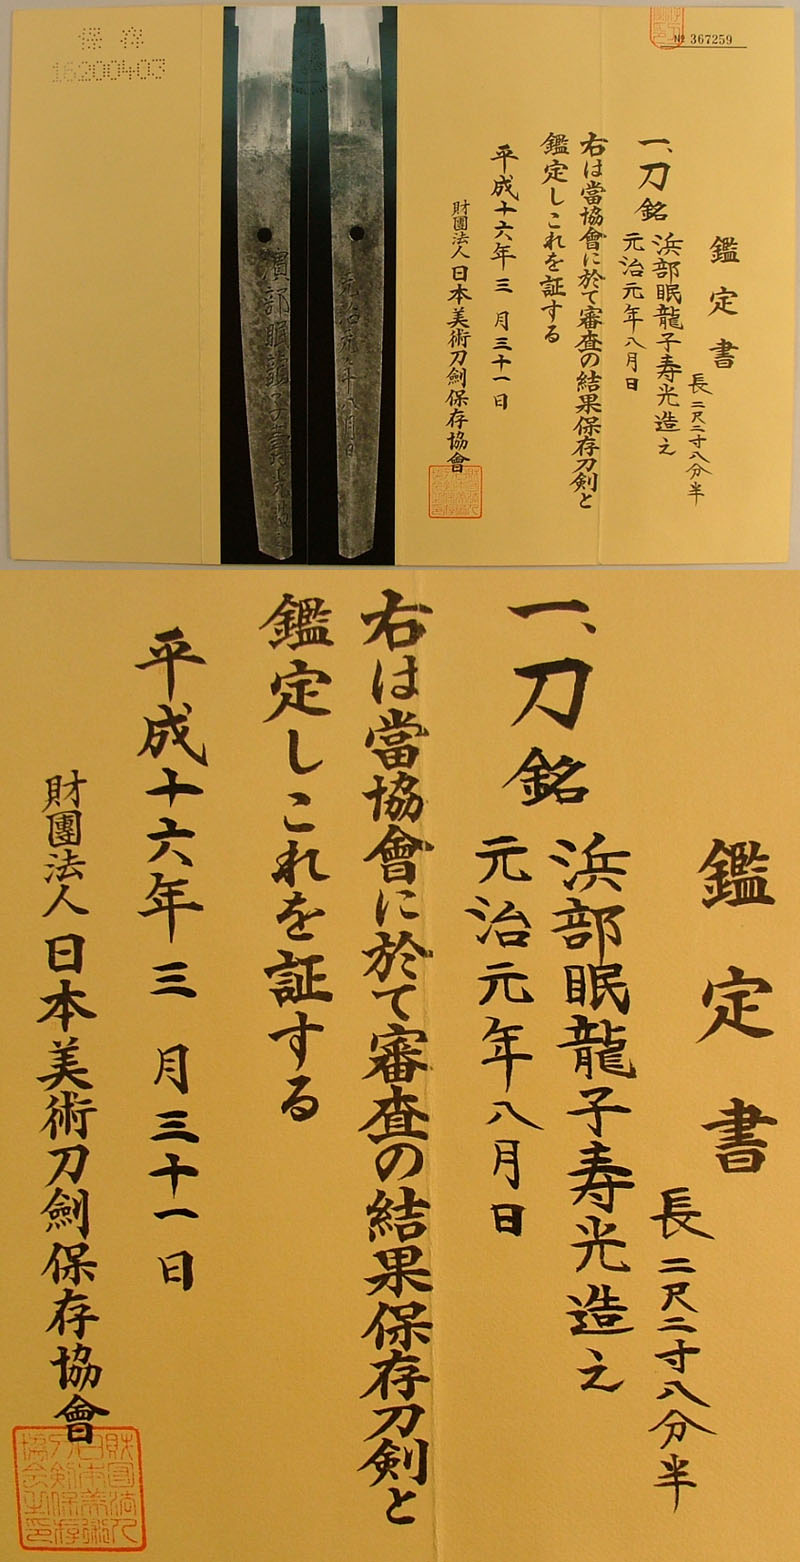 保存
16200403
濱部眠龍子壽光造
元治元年八月日
№ 367259
鑑定書
長二尺二寸八分半
一、刀銘
浜部眠龍子寿光造之
元治元年八月日
右は當協會に於て審査の結果保存刀剣と
鑑定しこれを証する
平成十六年三月三十一日
財團法人日本美術刀劍保存協會
鑑定書
長二尺二寸八分半
一、刀銘
浜部眠龍子寿光造之
元治元年八月日
右は當協會に於て審査の結果保存刀剣と
鑑定しこれを証する
平成十六年三月三十一日
財團法人日本美術刀劍保存協會